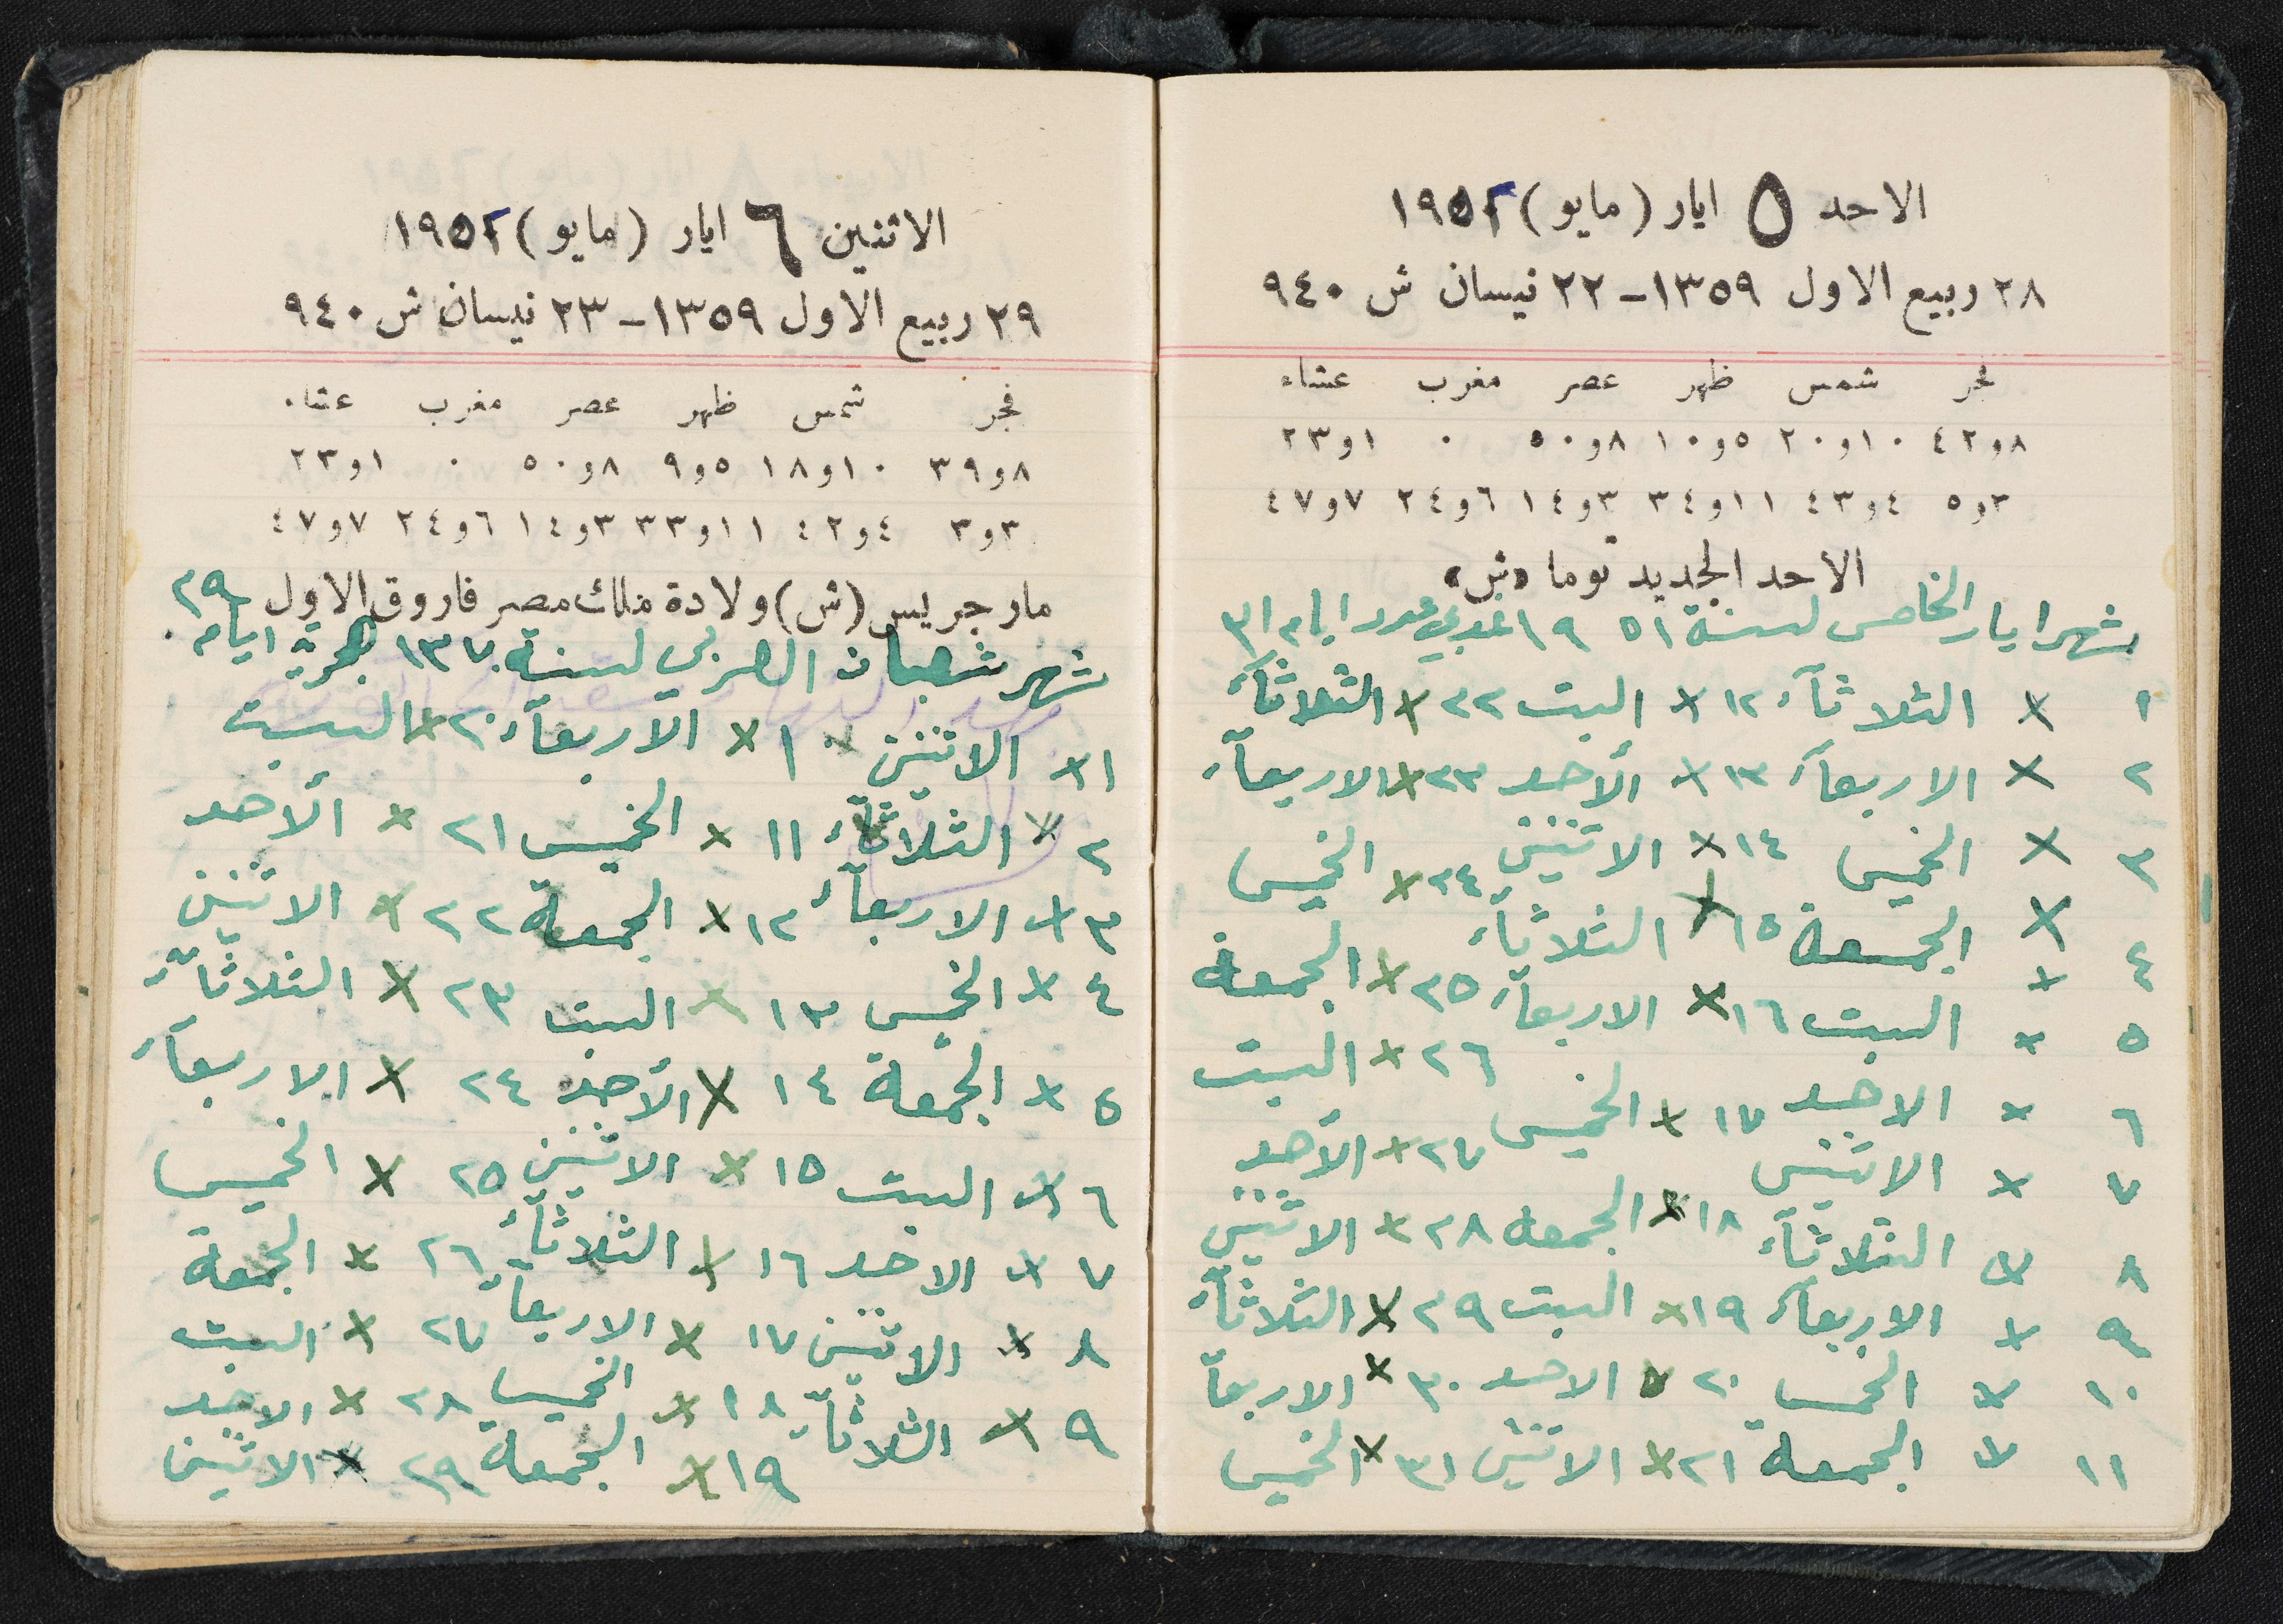 الاحد ٥ ايار (مايو) ١٩٥٢
٢٨ ربيع الاول ١٣٥٩ - ٢٢ نيسان ش ٩٤٠
فجر شمس ظهر عصر مغرب عشاء
٨و٤٢ ١٠و٢٠ ٥و١٠ ٨و٥٠ ٠ ١و٢٣
٣و٥ ٤و٤٣ ١١و٣٤ ٣و١٤ ٦و٢٤ ٧و٤٧
الاحد الجديد توما «ش»
شهر ايار الخامس لسنة ١٩٥١ غربي عدد ايام ٣١
١ × الثلاثآء ١٢ × السبت ٢٢ × الثلاثآء
٢ × الاربعآء ١٣ × الأحد ٢٣ × الاربعآء
٣ × الخميس ١٤ × الاثنين ٢٤ × الخميس
٤ × الجمعة ١٥ × الثلاثآء ٢٥ × الجمعة
٥ × السبت ١٦ × الاربعآء ٢٦ × السبت
٦ × الاحد ١٧ × الخميس ٢٧ × الأحد
٧ × الاثنين ١٨ × الجمعه ٢٨ × الاثنين
٨ × الثلاثآء ١٩ × السبت ٢٩ × الثلاثآء
٩ × الاربعآء ٢٠ × الاحد ٣٠ × الاربعآ
١٠ × الخميس ٢١ × الاثنين ٣١ × الخميس
١١ × الجمعة
الاثنين ٦ ايار (مايو) ١٩٥٢
٢٩ ربيع الاول ١٣٥٩ - ٢٣ نيسان ش ٩٤٠
فجر شمس ظهر عصر مغرب عشاء
٨و٣٩ ١٠و١٨ ٥و٩ ٨و٥٠ ٠ ١و٢٣
٣و٣ ٤و٤٢ ١١و٣٣ ٣و١٤ ٦و٢٤ ٧و٤٧
مار جريس (ش) ولادة ملك مصر فاروق الاول
شهر شعبان العربي لسنة ١٣٧٠ هجرية ايام ٢٩
١ × الاثنين ١٠ × الاربعآء ٢٠ × السبت
٢ × الثلاثآء ١١ × الخميس ٢١ × الأحد
٣ × الاربعآء ١٢ × الجمعة ٢٢ × الاثنين
٤ × الخميس ١٣ × السبت ٢٣ × الثلاثآء
٥ × الجمعة ١٤ × الأحد ٢٤ × الاربعآء
٦ × السبت ١٥ × الاثنين ٢٥ × الخميس
٧ × الاحد ١٦ × الثلاثآء ٢٦ × الجمعة
٨ × الاثنين ١٧ × الاربعآء ٢٧ × السبت
٩ × الثلاثآء ١٨ × الخميس ٢٨ × الاحد
١٩ × الجمعة ٢٩ × الاثنين